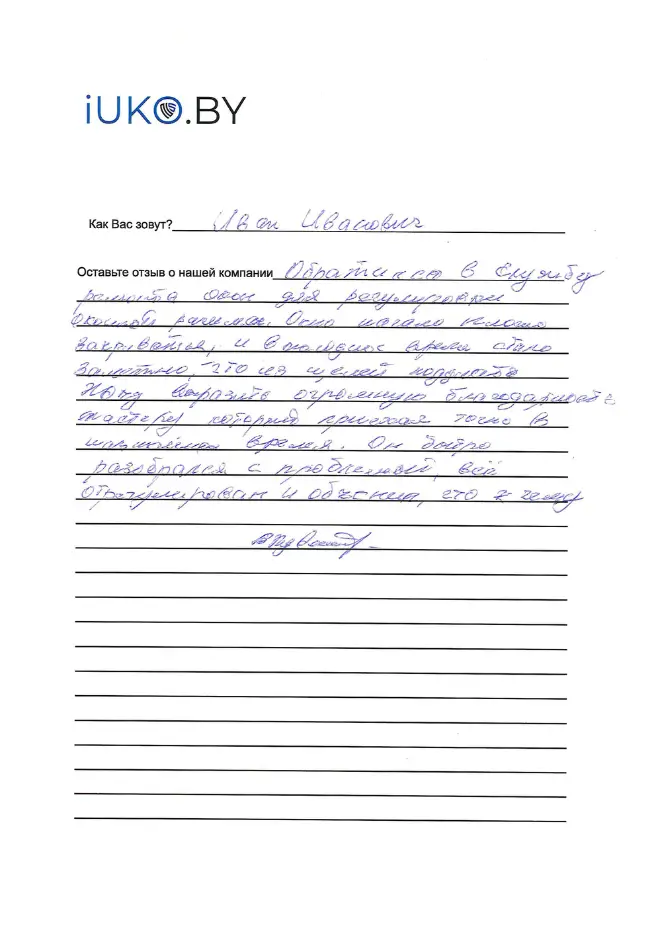 iUKO.BY
Как Вас зовут? Иван Иванович
Оставьте отзыв о нашей компании Обратился в службу
ремонта окон для регулировки
оконной рамы. Окно начало плохо
закрываться, и в последнее время стало
заметно, что из щелей поддувает
Хочу выразить огромную благодарность
мастеру который приехал точно в
назначенное время. Он быстро
разобрался с проблемой, всё
отрегулировал и объяснил, что к чему